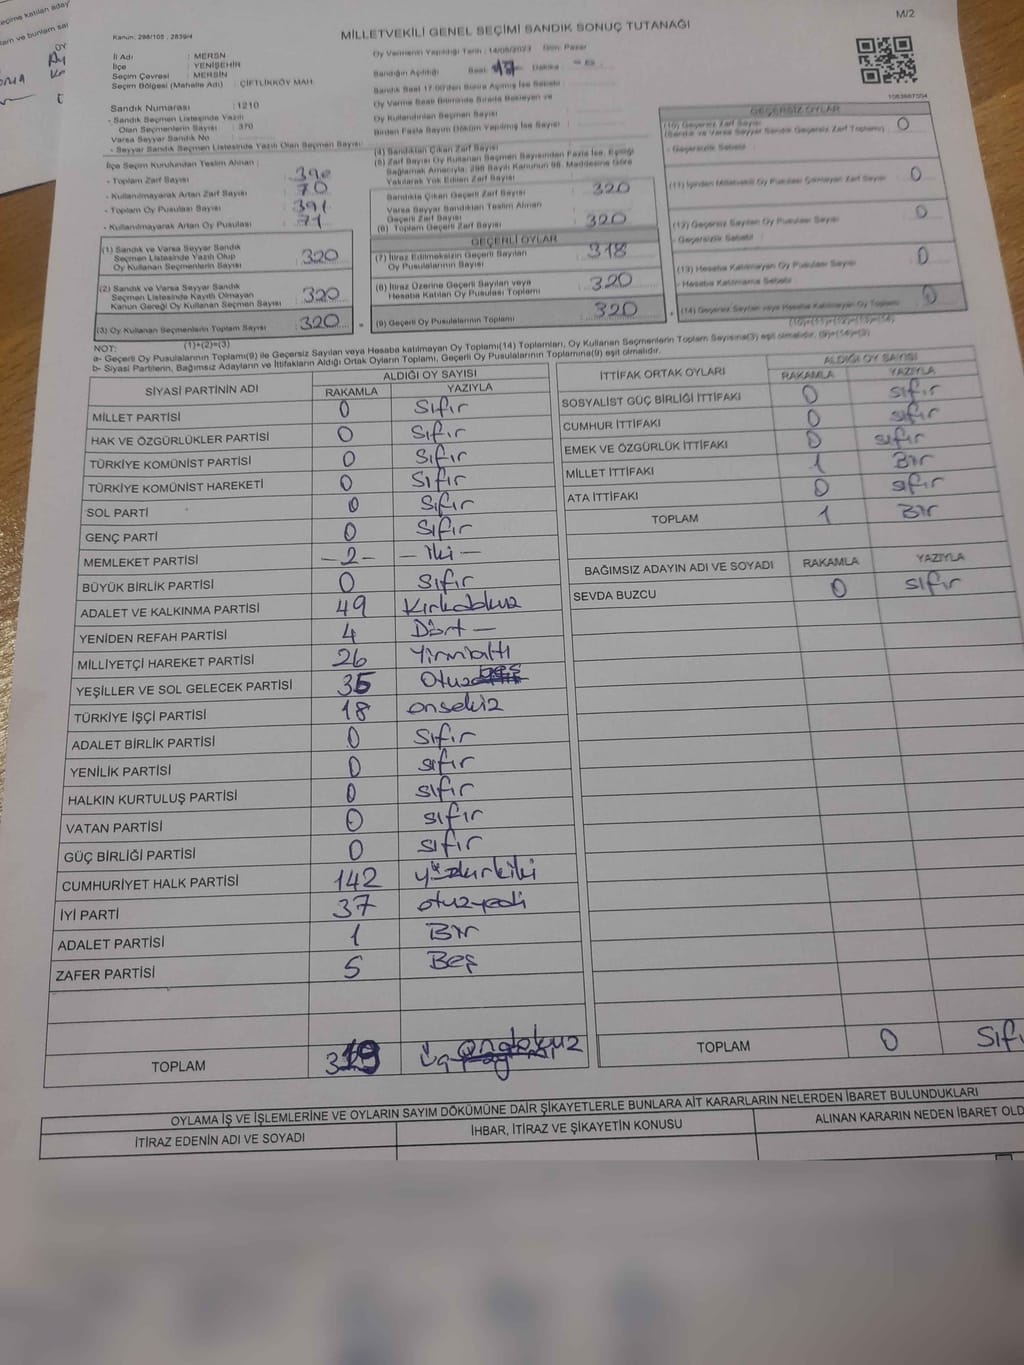 M/2
Kanun: 298/105 , 2839/4
MİLLETVEKİLİ GENEL SEÇİMİ SANDIK SONUÇ TUTANAĞI
İl Adı : MERSİN
İlçe : YENİŞEHİR
Seçim Çevresi : MERSİN
Seçim Bölgesi (Mahalle Adı) : ÇİFTLİKKÖY MAH.
Oy Vermenin Yapıldığı Tarih : 14/05/2023 Gün: Pazar
Sandığın Açıldığı Saat: 17 Dakika :
Sandık Numarası : 1210
- Sandık Seçmen Listesinde Yazılı
Olan Seçmenlerin Sayısı : 370
Varsa Seyyar Sandık No
- Seyyar Sandık Seçmen Listesinde Yazılı Olan Seçmen Sayısı :
İlçe Seçim Kurulundan Teslim Alınan :
- Toplam Zarf Sayısı : 390
- Kullanılmayarak Artan Zarf Sayısı : 70
- Toplam Oy Pusulası Sayısı : 391
- Kullanılmayarak Artan Oy Pusulası : 71
(1) Sandık ve Varsa Seyyar Sandık
Seçmen Listesinde Yazılı Olup
Oy Kullanan Seçmenlerin Sayısı : 320
(2) Sandık ve Varsa Seyyar Sandık
Seçmen Listesinde Kayıtlı Olmayan
Kanun Gereği Oy Kullanan Seçmen Sayısı : 320
(3) Oy Kullanan Seçmenlerin Toplam Sayısı : 320
(1)+(2)=(3)
Sandık Saat 17:00'den Sonra Açılmış İse Sebebi :
Oy Verme Saati Bitiminde Sırada Bekleyen ve
Oy Kullandırılan Seçmen Sayısı :
Birden Fazla Sayım Döküm Yapılmış İse Sayısı :
(4) Sandıktan Çıkan Zarf Sayısı
(5) Zarf Sayısı Oy Kullanan Seçmen Sayısından Fazla İse, Eşitliği
Sağlamak Amacıyla; 298 Sayılı Kanunun 98. Maddesine Göre
Yakılarak Yok Edilen Zarf Sayısı
Sandıkta Çıkan Geçerli Zarf Sayısı : 320
Varsa Seyyar Sandıktan Teslim Alınan
Geçerli Zarf Sayısı
(6) Toplam Geçerli Zarf Sayısı : 320
GEÇERLİ OYLAR
(7) İtiraz Edilmeksizin Geçerli Sayılan
Oy Pusulalarının Sayısı : 318
(8) İtiraz Üzerine Geçerli Sayılan veya
Hesaba Katılan Oy Pusulası Toplamı : 320
(9) Geçerli Oy Pusulalarının Toplamı : 320
GEÇERSİZ OYLAR
(10) Geçersiz Zarf Sayısı
(Sandık ve Varsa Seyyar Sandık Geçersiz Zarf Toplamı) : 0
- Geçersizlik Sebebi :
(11) İçinden Milletvekili Oy Pusulası Çıkmayan Zarf Sayısı : 0
(12) Geçersiz Sayılan Oy Pusulası Sayısı : 0
- Geçersizlik Sebebi :
(13) Hesaba Katılmayan Oy Pusulası Sayısı : 0
- Hesaba Katılmama Sebebi :
(14) Geçersiz Sayılan veya Hesaba Katılmayan Oy Toplamı : 0
(10)+(11)+(12)+(13)=(14)
NOT:
a- Geçerli Oy Pusulalarının Toplamı(9) ile Geçersiz Sayılan veya Hesaba Katılmayan Oy Toplamı(14) Toplamları, Oy Kullanan Seçmenlerin Toplam Sayısına(3) eşit olmalıdır. (9)+(14)=(3)
b- Siyasi Partilerin, Bağımsız Adayların ve İttifakların Aldığı Ortak Oyların Toplamı, Geçerli Oy Pusulalarının Toplamına(9) eşit olmalıdır.
SİYASİ PARTİNİN ADI ALDIĞI OY SAYISI
RAKAMLA YAZIYLA
MİLLET PARTİSİ 0 Sıfır
HAK VE ÖZGÜRLÜKLER PARTİSİ 0 Sıfır
TÜRKİYE KOMÜNİST PARTİSİ 0 Sıfır
TÜRKİYE KOMÜNİST HAREKETİ 0 Sıfır
SOL PARTİ 0 Sıfır
GENÇ PARTİ 0 Sıfır
MEMLEKET PARTİSİ -2- - İki -
BÜYÜK BİRLİK PARTİSİ 0 Sıfır
ADALET VE KALKINMA PARTİSİ 49 Kırkdokuz
YENİDEN REFAH PARTİSİ 4 Dört -
MİLLİYETÇİ HAREKET PARTİSİ 26 Yirmialtı
YEŞİLLER VE SOL GELECEK PARTİSİ 35 Otuzbeş
TÜRKİYE İŞÇİ PARTİSİ 18 onsekiz
ADALET BİRLİK PARTİSİ 0 Sıfır
YENİLİK PARTİSİ 0 sıfır
HALKIN KURTULUŞ PARTİSİ 0 sıfır
VATAN PARTİSİ 0 sıfır
GÜÇ BİRLİĞİ PARTİSİ 0 sıfır
CUMHURİYET HALK PARTİSİ 142 yüzkırkiki
İYİ PARTİ 37 otuzyedi
ADALET PARTİSİ 1 Bir
ZAFER PARTİSİ 5 Beş
TOPLAM 319 ondokuz
İTTİFAK ORTAK OYLARI ALDIĞI OY SAYISI
RAKAMLA YAZIYLA
SOSYALİST GÜÇ BİRLİĞİ İTTİFAKI 0 sıfır
CUMHUR İTTİFAKI 0 sıfır
EMEK VE ÖZGÜRLÜK İTTİFAKI 0 sıfır
MİLLET İTTİFAKI 1 Bir
ATA İTTİFAKI 0 sıfır
TOPLAM 1 Bir
BAĞIMSIZ ADAYIN ADI VE SOYADI RAKAMLA YAZIYLA
SEVDA BUZCU 0 sıfır
TOPLAM 0 Sıfı
OYLAMA İŞ VE İŞLEMLERİNE VE OYLARIN SAYIM DÖKÜMÜNE DAİR ŞİKAYETLERLE BUNLARA AİT KARARLARIN NELERDEN İBARET BULUNDUKLARI
İTİRAZ EDENİN ADI VE SOYADI İHBAR, İTİRAZ VE ŞİKAYETİN KONUSU ALINAN KARARIN NEDEN İBARET OLD